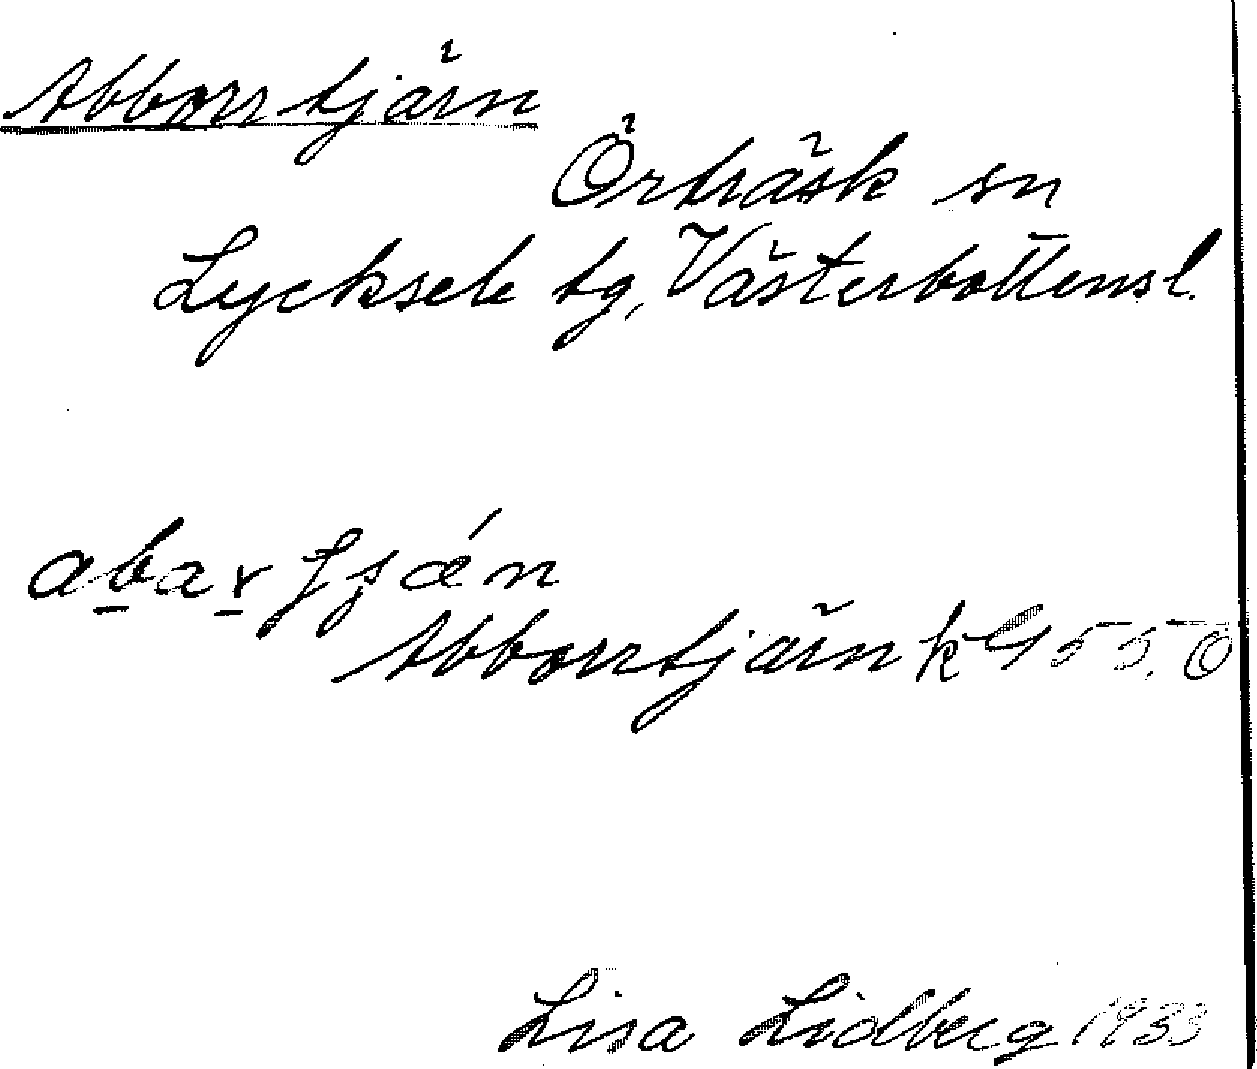 Abborrtjärn
Örträsk sn
Lycksele tg, Västerbottensl.
abar
Abborrtjärn k 455. Ö
Lisa Lidberg 1933